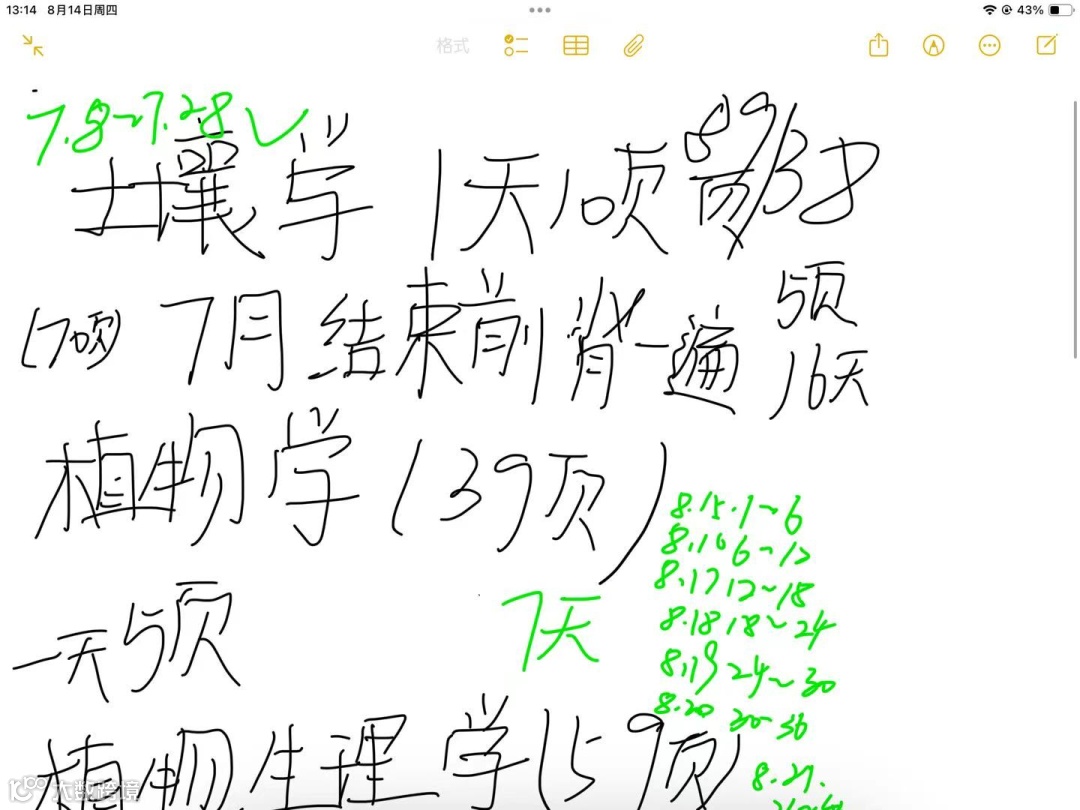 13:14 8月14日周四
43%
格式
7.8~7.28
土壤学 1天10页
(70页) 7月结束前背一遍
5页
16天
植物学(39页)
8.15.1~6
8.16 6~12
8.17 12~18
8.18 18~24
8.19 24~30
8.20 30~36
8.21.
一天5页
7天
植物生理学(59页)
大数跨境